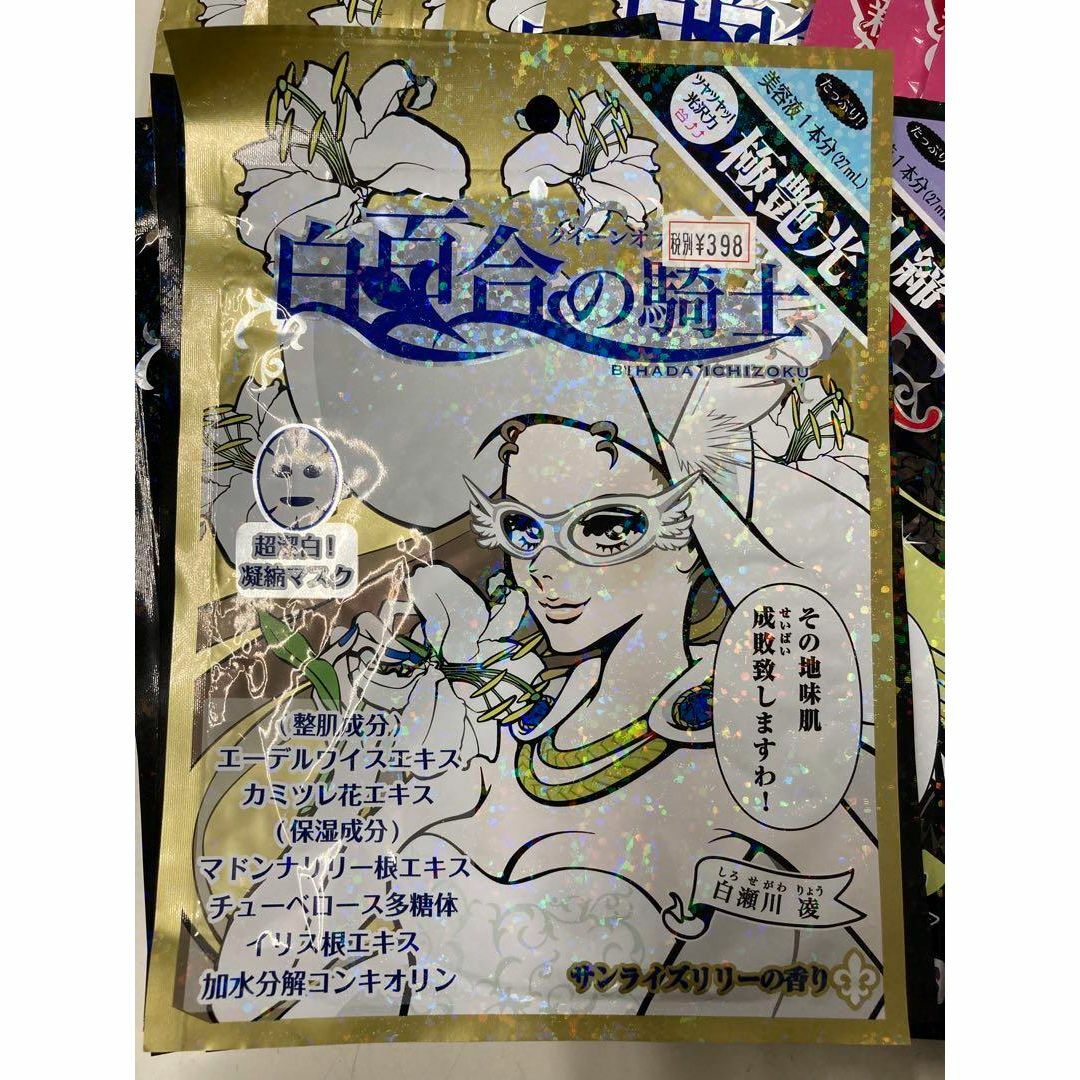 たっぷり!
美容液1本分(27mL)
ツヤツヤッ!
光沢力
極艶光
たっぷり
1本分(27m
税別¥398
クイーンオ
白百合の騎士
BIHADA ICHIZOKU
超潔白!
凝縮マスク
その地味肌
せいばい
成敗致しますわ!
(整肌成分)
エーデルワイスエキス
カミツレ花エキス
(保湿成分)
マドンナリリー根エキス
チューベロース多糖体
イリス根エキス
加水分解コンキオリン
しろせがわ りょう
白瀬川 凌
サンライズリリーの香り